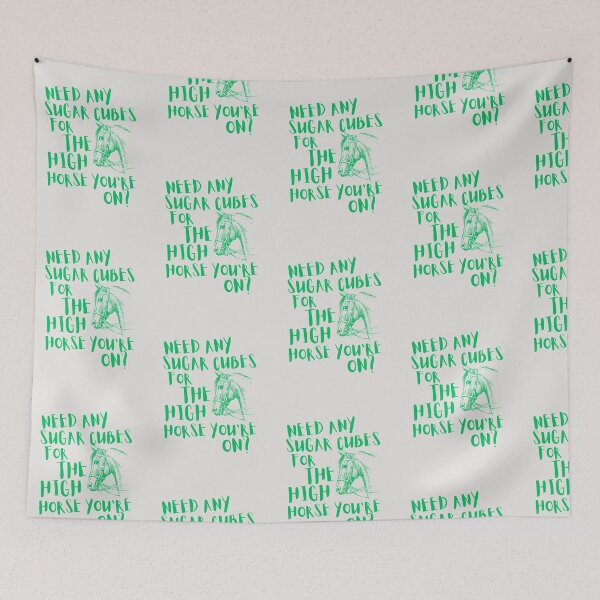 NEED ANY
SUGAR CUBES
FOR
THE
HIGH
HORSE YOU'RE
ON?
NEED ANY
SUGAR CUBES
FOR
THE
HIGH
HORSE YOU'RE
ON?
NEED ANY
SUGAR CUBES
FOR
THE
HIGH
HORSE YOU'RE
ON?
THE
HIGH
HORSE YOU'RE
ON?
NEED ANY
SUGAR CUBES
FOR
THE
HIGH
HORSE YOU'RE
ON?
NEED ANY
SUGAR CUBES
FOR
THE
HIGH
HORSE YOU'RE
ON?
NEED ANY
SUGAR CUBES
NEED ANY
SUGAR CUBES
FOR
THE
HIGH
HORSE YOU'RE
ON?
NEED ANY
SUGAR CUBES
FOR
THE
HIGH
HORSE YOU'RE
ON?
NEED ANY
SUGAR CUBES
FOR
THE
HIGH
HORSE YOU'RE
ON?
THE
HIGH
HORSE YOU'RE
ON?
NEED ANY
SUGAR CUBES
FOR
THE
HIGH
HORSE YOU'RE
ON?
NEED ANY
SUGAR CUBES
FOR
THE
HIGH
HORSE YOU'RE
ON?
NEED ANY
SUGAR CUBES
NEED
SUGAR
FOR
HIGH
HORSE
NEED
SUGAR
FOR
HIGH
HORSE
NEED
SUGAR
FOR
HIGH
HORSE